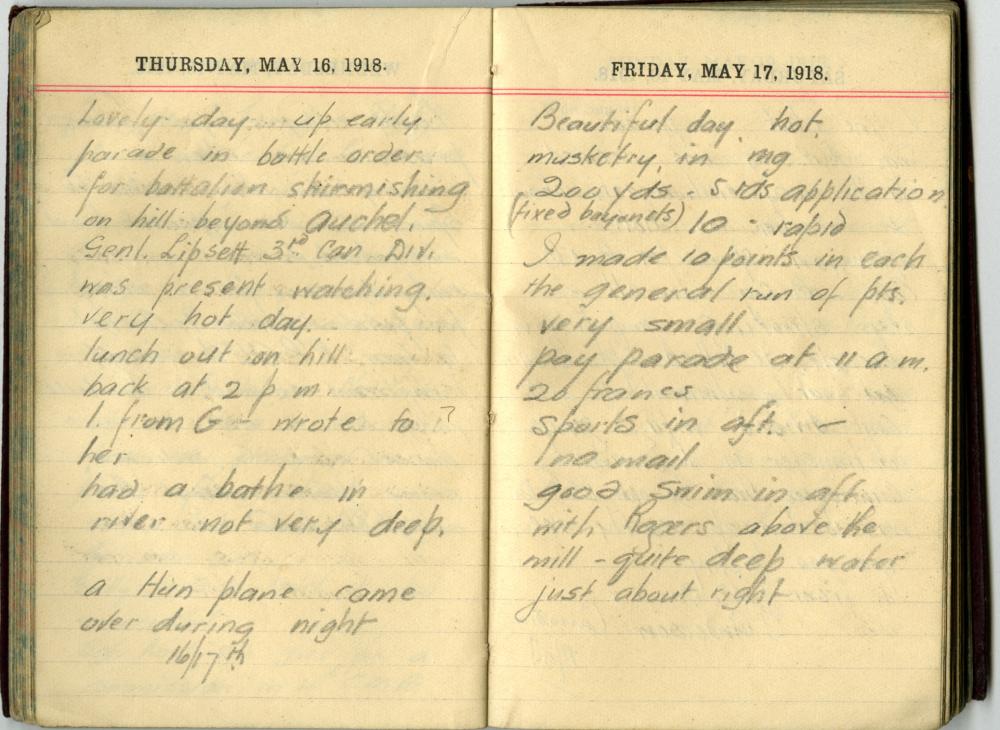 THURSDAY, MAY 16, 1918.
Lovely day. up early
parade in battle order
for battalion skirmishing
on hill beyond Auchel.
Genl. Lipsett 3rd Can Div.
was present watching.
very hot day.
lunch out on hill.
back at 2 p m.
1. from G - wrote to ?
her
had a bathe in
river not very deep.
a Hun plane came
over during night
16/17th
FRIDAY, MAY 17, 1918.
Beautiful day hot.
musketry in mg
200 yds - 5 rds application
(fixed bayonets) 10 - rapid
I made 10 points in each
the general run of pts.
very small.
pay parade at 11 a.m.
20 francs
sports in aft. —
no mail
good swim in aft
with Rogers above the
mill - quite deep water
just about right